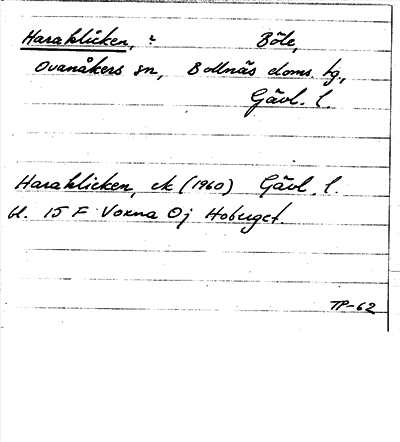 Haraklicken, ? Böle,
Ovanåkers sn, Bollnäs doms. tg,
Gävl. l.
Haraklicken, ek (1960) Gävl. l.
bl. 15 F Voxna Oj Hoberget.
TP-62